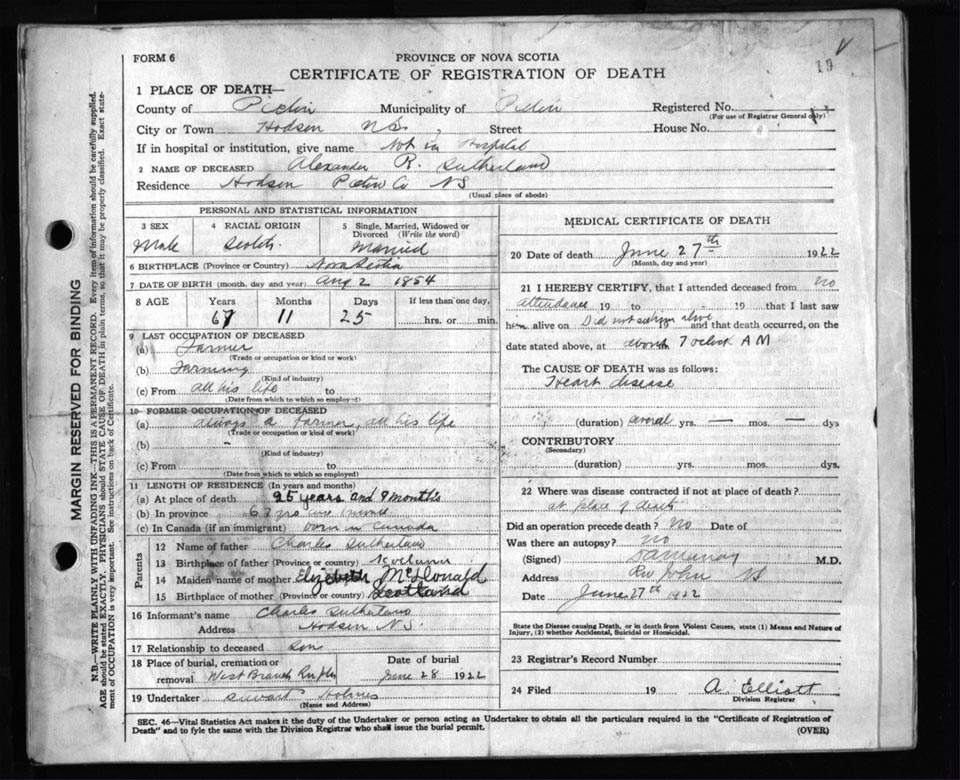 FORM 6
PROVINCE OF NOVA SCOTIA
19
CERTIFICATE OF REGISTRATION OF DEATH
1 PLACE OF DEATH—
County of Pictou Municipality of Pictou Registered No.
(For use of Registrar General only)
City or Town Hodson N.S. , Street House No.
If in hospital or institution, give name Not in Hospital
2 NAME OF DECEASED Alexander R. Sutherland
Residence Hodson Pictou Co NS
(Usual place of abode)
PERSONAL AND STATISTICAL INFORMATION
3 SEX 4 RACIAL ORIGIN 5 Single, Married, Widowed or Divorced (Write the word)
Male Scotch Married
6 BIRTHPLACE (Province or Country) Nova Scotia
7 DATE OF BIRTH (month, day and year) Aug 2 1854
8 AGE Years Months Days If less than one day,
67 11 25 hrs. or min.
9 LAST OCCUPATION OF DECEASED
(a) Farmer
(Trade or occupation or kind or work)
(b) Farming
(Kind of industry)
(c) From all his life to
(Date from which to which so employed)
10 FORMER OCCUPATION OF DECEASED
(a) always a farmer, all his life
(Trade or occupation or kind of work)
(b) -
(Kind of industry)
(c) From to
(Date from which to which so employed)
11 LENGTH OF RESIDENCE (In years and months)
(a) At place of death 25 years and 9 months
(b) In province 67
(c) In Canada (if an immigrant) born in Canada
Parents
12 Name of father Charles Sutherland
13 Birthplace of father (Province or country) Scotland
14 Maiden name of mother Elizabeth McDonald
15 Birthplace of mother (Province or country) Scotland
16 Informant's name Charles Sutherland
Address Hodson N.S.
17 Relationship to deceased Son
18 Place of burial, cremation or removal West Branch Date of burial June 28 1922
19 Undertaker Holmes
(Name and Address)
MEDICAL CERTIFICATE OF DEATH
20 Date of death June 27th 1922
(Month, day and year)
21 I HEREBY CERTIFY, that I attended deceased from no
attendance 19 to 19 that I last saw
him alive on Did not see him alive 19 and that death occurred, on the
date stated above, at about 7 oclock A M
The CAUSE OF DEATH was as follows:
Heart disease
(duration) several yrs. — mos. — dys
CONTRIBUTORY
(Secondary)
(duration) yrs. mos. dys.
22 Where was disease contracted if not at place of death?
at place of death
Did an operation precede death? no Date of
Was there an autopsy? no
(Signed) M.D.
Address River John NS
Date June 27th 1922
State the Disease causing Death, or in death from Violent Causes, state (1) Means and Nature of
Injury, (2) whether Accidental, Suicidal or Homicidal.
23 Registrar's Record Number
24 Filed 19 A. Elliott
Division Registrar
SEC. 46—Vital Statistics Act makes it the duty of the Undertaker or person acting as Undertaker to obtain all the particulars required in the "Certificate of Registration of
Death" and to fyle the same with the Division Registrar who shall issue the burial permit.
(OVER)
MARGIN RESERVED FOR BINDING
N.B.—WRITE PLAINLY WITH UNFADING INK—THIS IS A PERMANENT RECORD. Every item of information should be carefully supplied.
AGE should be stated EXACTLY. PHYSICIANS should STATE CAUSE OF DEATH in plain terms, so that it may be properly classified. Exact statement
of OCCUPATION is very important. See instructions on back of Certificate.